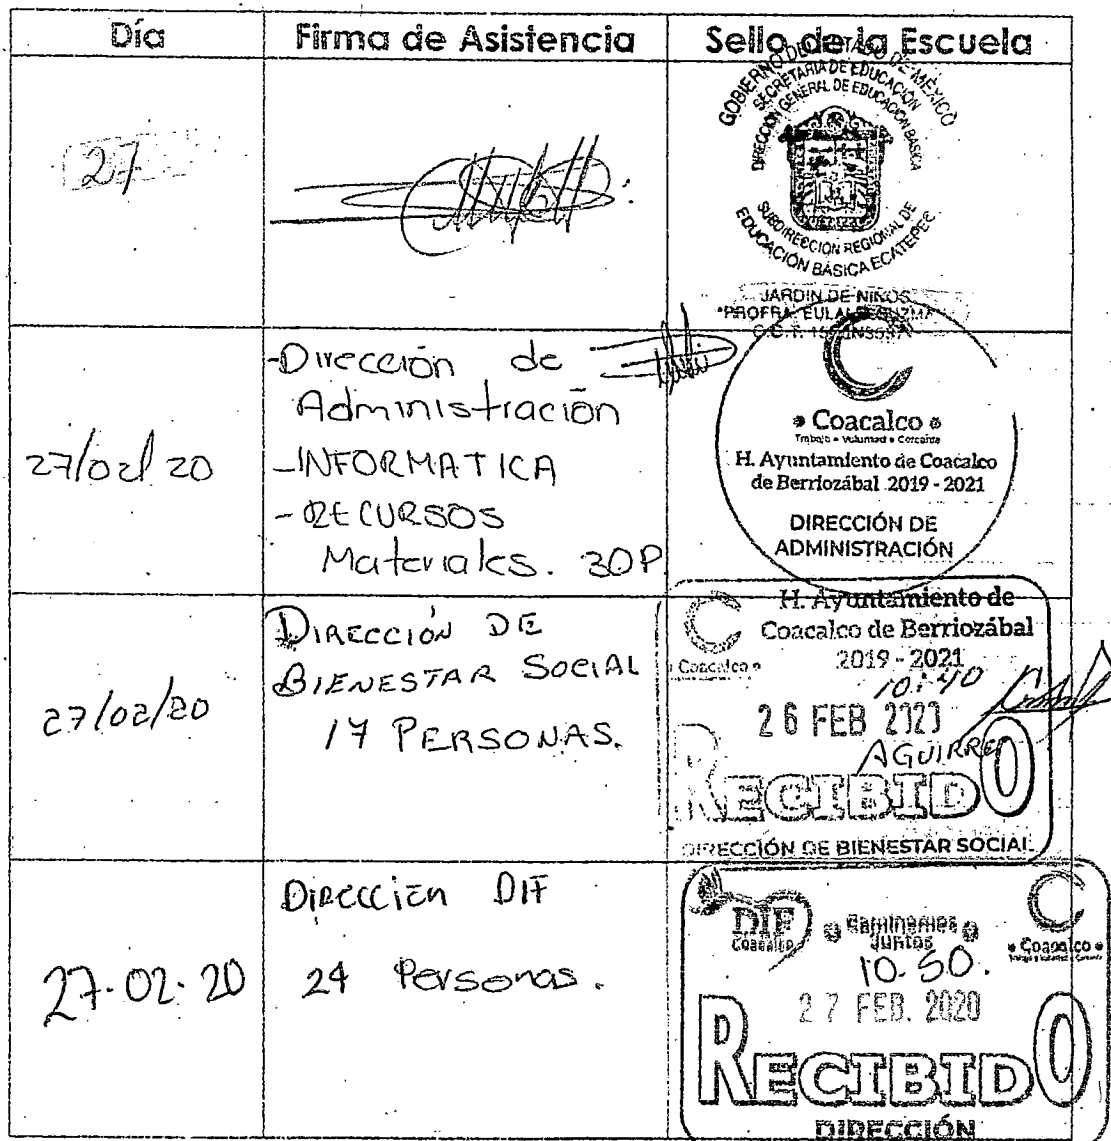 Día Firma de Asistencia Sello de la Escuela
27
GOBIERNO DEL ESTADO DE MÉXICO
SECRETARIA DE EDUCACIÓN
DIRECCIÓN GENERAL DE EDUCACIÓN BASICA
SUBDIRECCION REGIONAL DE
EDUCACIÓN BÁSICA ECATEPEC
JARDIN DE NIÑOS
"PROFRA. EULALIA GUZMAN
C.C.T.
27/02/20
-Dirección de
Administración
-INFORMATICA
-RECURSOS
Materiales. 30P
Coacalco
Trabajo • Voluntad •
H. Ayuntamiento de Coacalco
de Berriozábal 2019 - 2021
DIRECCIÓN DE
ADMINISTRACIÓN
27/02/20
DIRECCIÓN DE
BIENESTAR SOCIAL
17 PERSONAS.
H. Ayuntamiento de
Coacalco de Berriozábal
2019 - 2021
Coacalco
10:40
26 FEB 2020
AGUIRRE
RECIBIDO
DIRECCIÓN DE BIENESTAR SOCIAL
27.02.20
Dirección DIF
24 Personas.
DIF
Coacalco
Caminemos
Juntos
Coacalco
10-50.
27 FEB. 2020
RECIBIDO
DIRECCIÓN